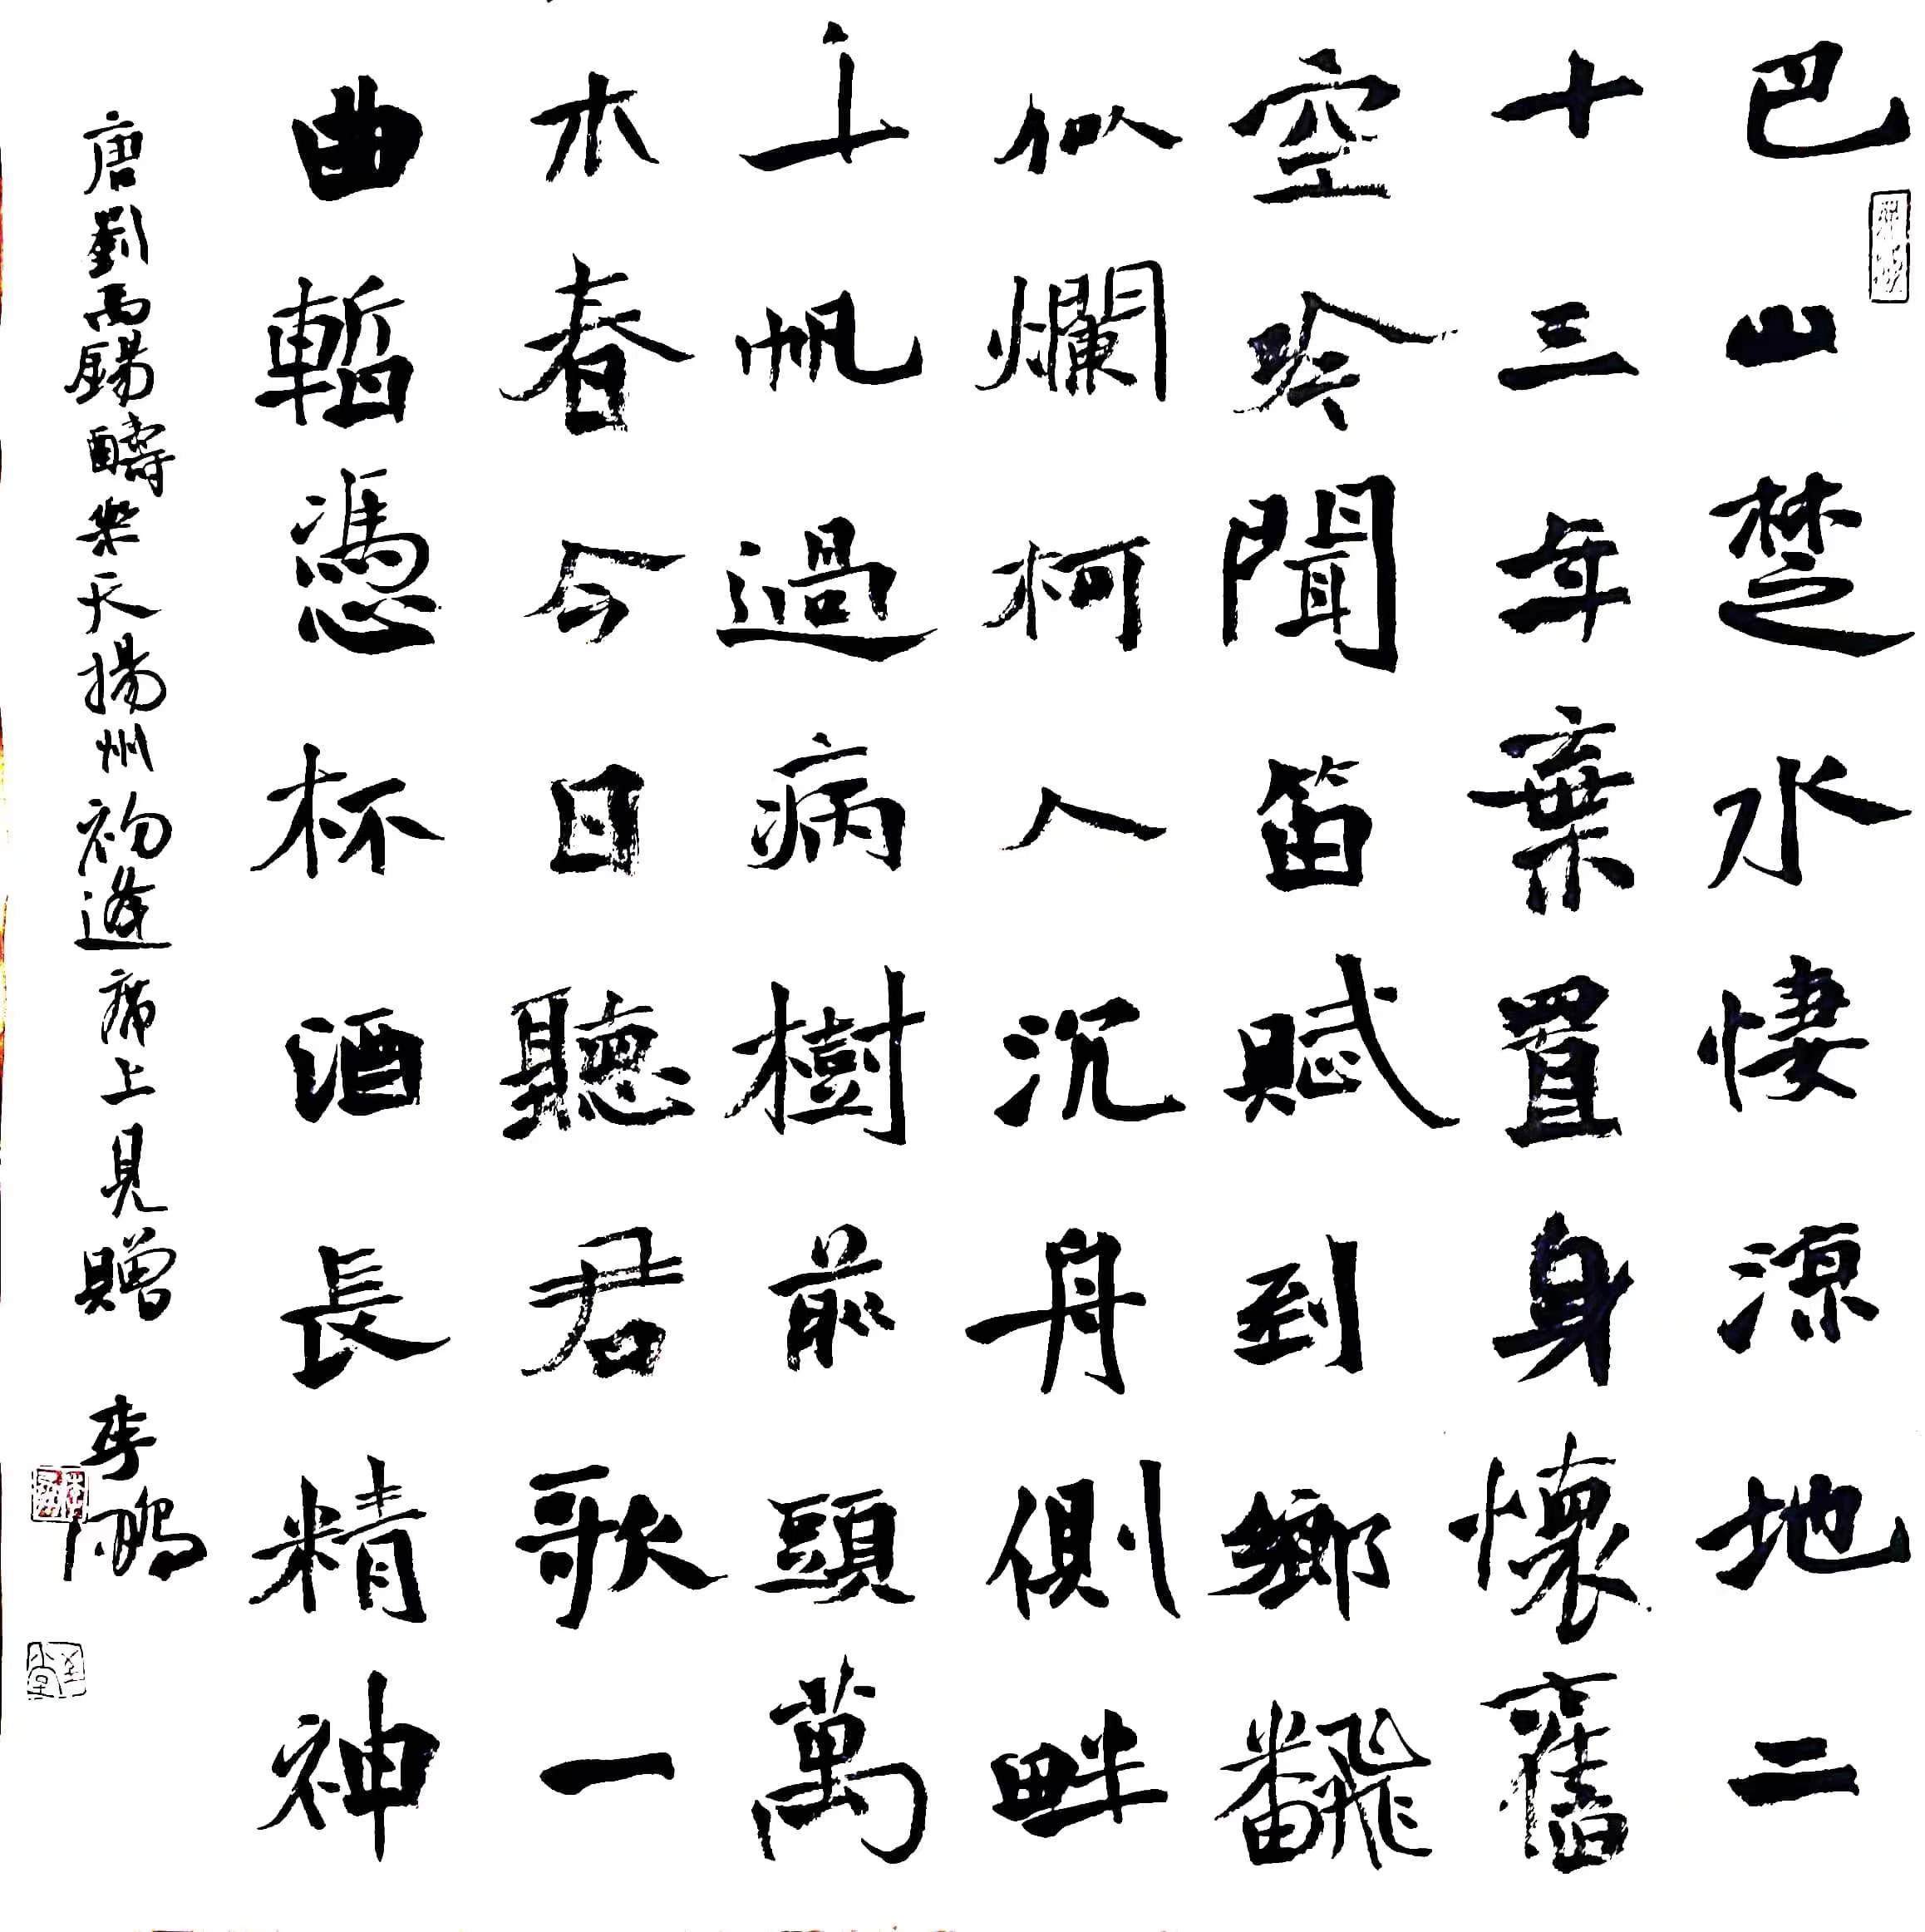 巴山楚水悽涼地二
十三年棄置身懷舊
空吟聞笛賦到鄉飜
似爛柯人沉舟側畔
千帆過病樹前頭萬
木春今日聽君歌一
曲暫憑杯酒長精神
唐劉禹錫醻樂天揚州初逢席上見贈 李鵬